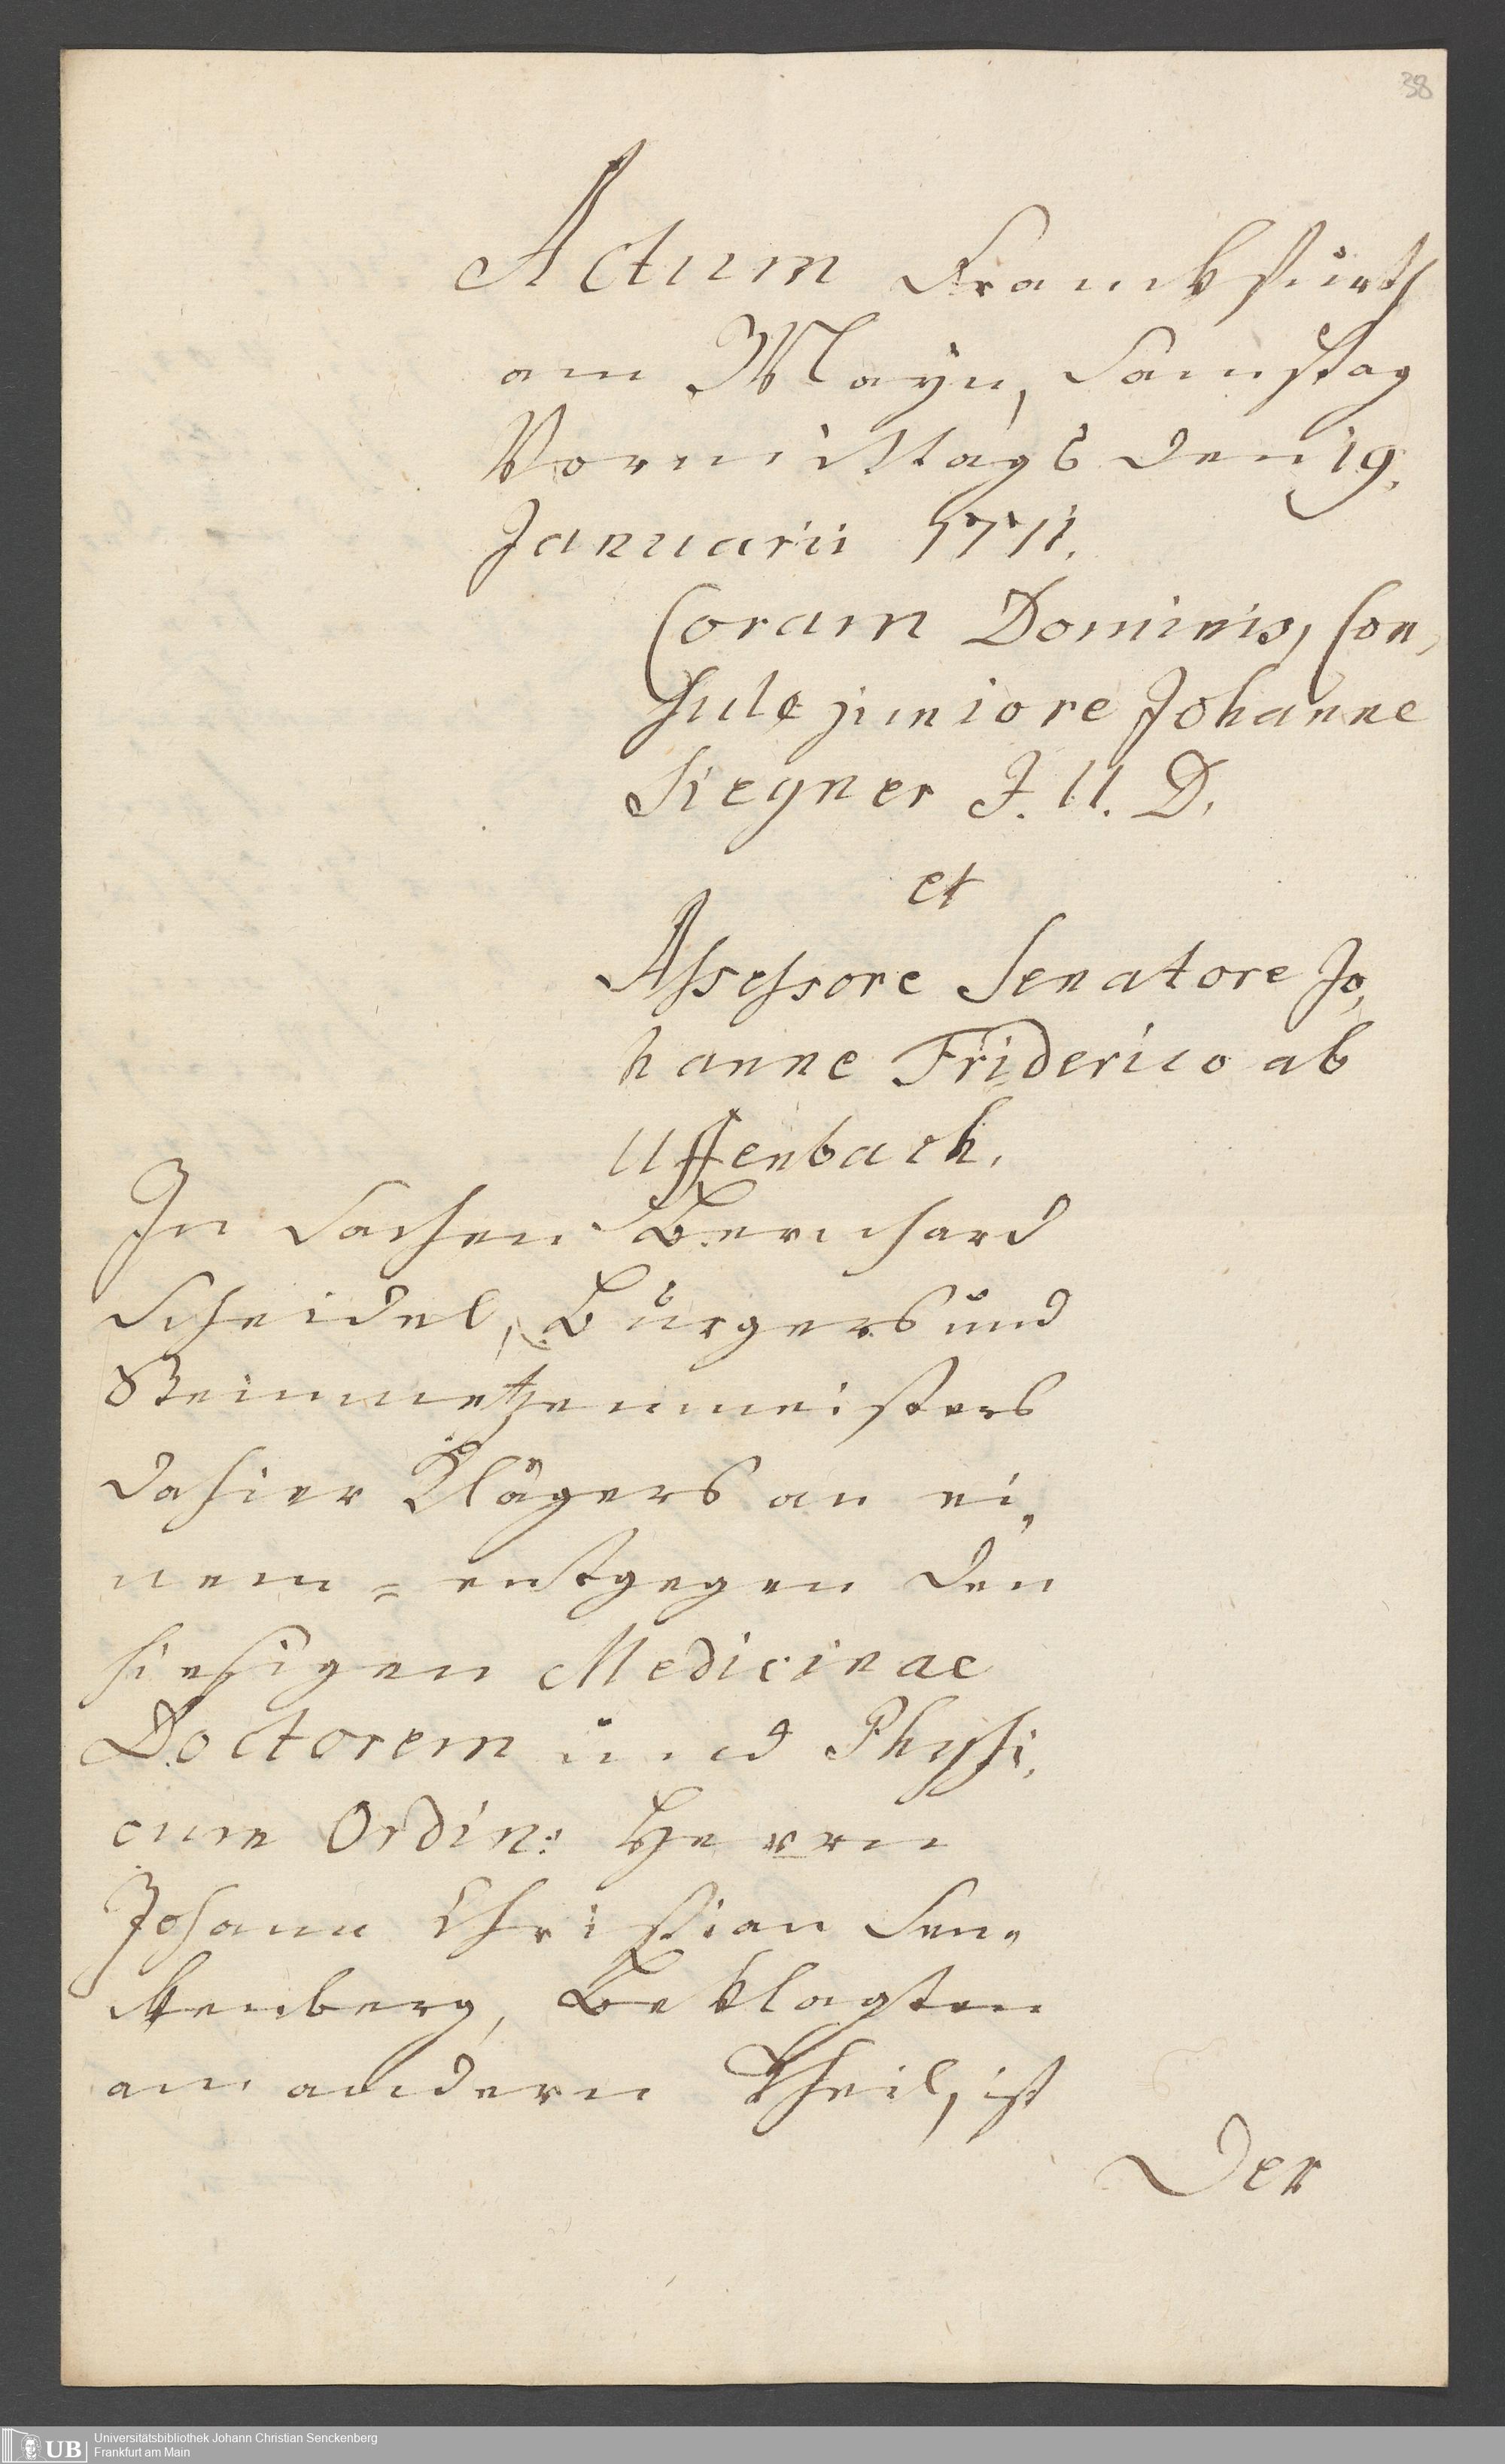 38
Actum Franckfurth
am Mayn, Samstag
Vormittags den 19.
Januarii 1771.
Coram Dominis, Con„
sule juniore Johanne
Siegner J. U. D.
et
Assessore Senatore Jo„
hanne Friderico ab
Uffenbach.
In Sachen Bernhard
Scheidel, Burgers und
Steinmetzenmeisters
dahier Klägers an ei„
nem = entgegen den
hiesigen Medicinae
Doctorem und Physi„
cum Ordin: Herrn
Johann Christian Sen„
ckenberg, Beklagten
am andern Theil, ist
Der
UB
Universitätsbibliothek Johann Christian Senckenberg
Frankfurt am Main